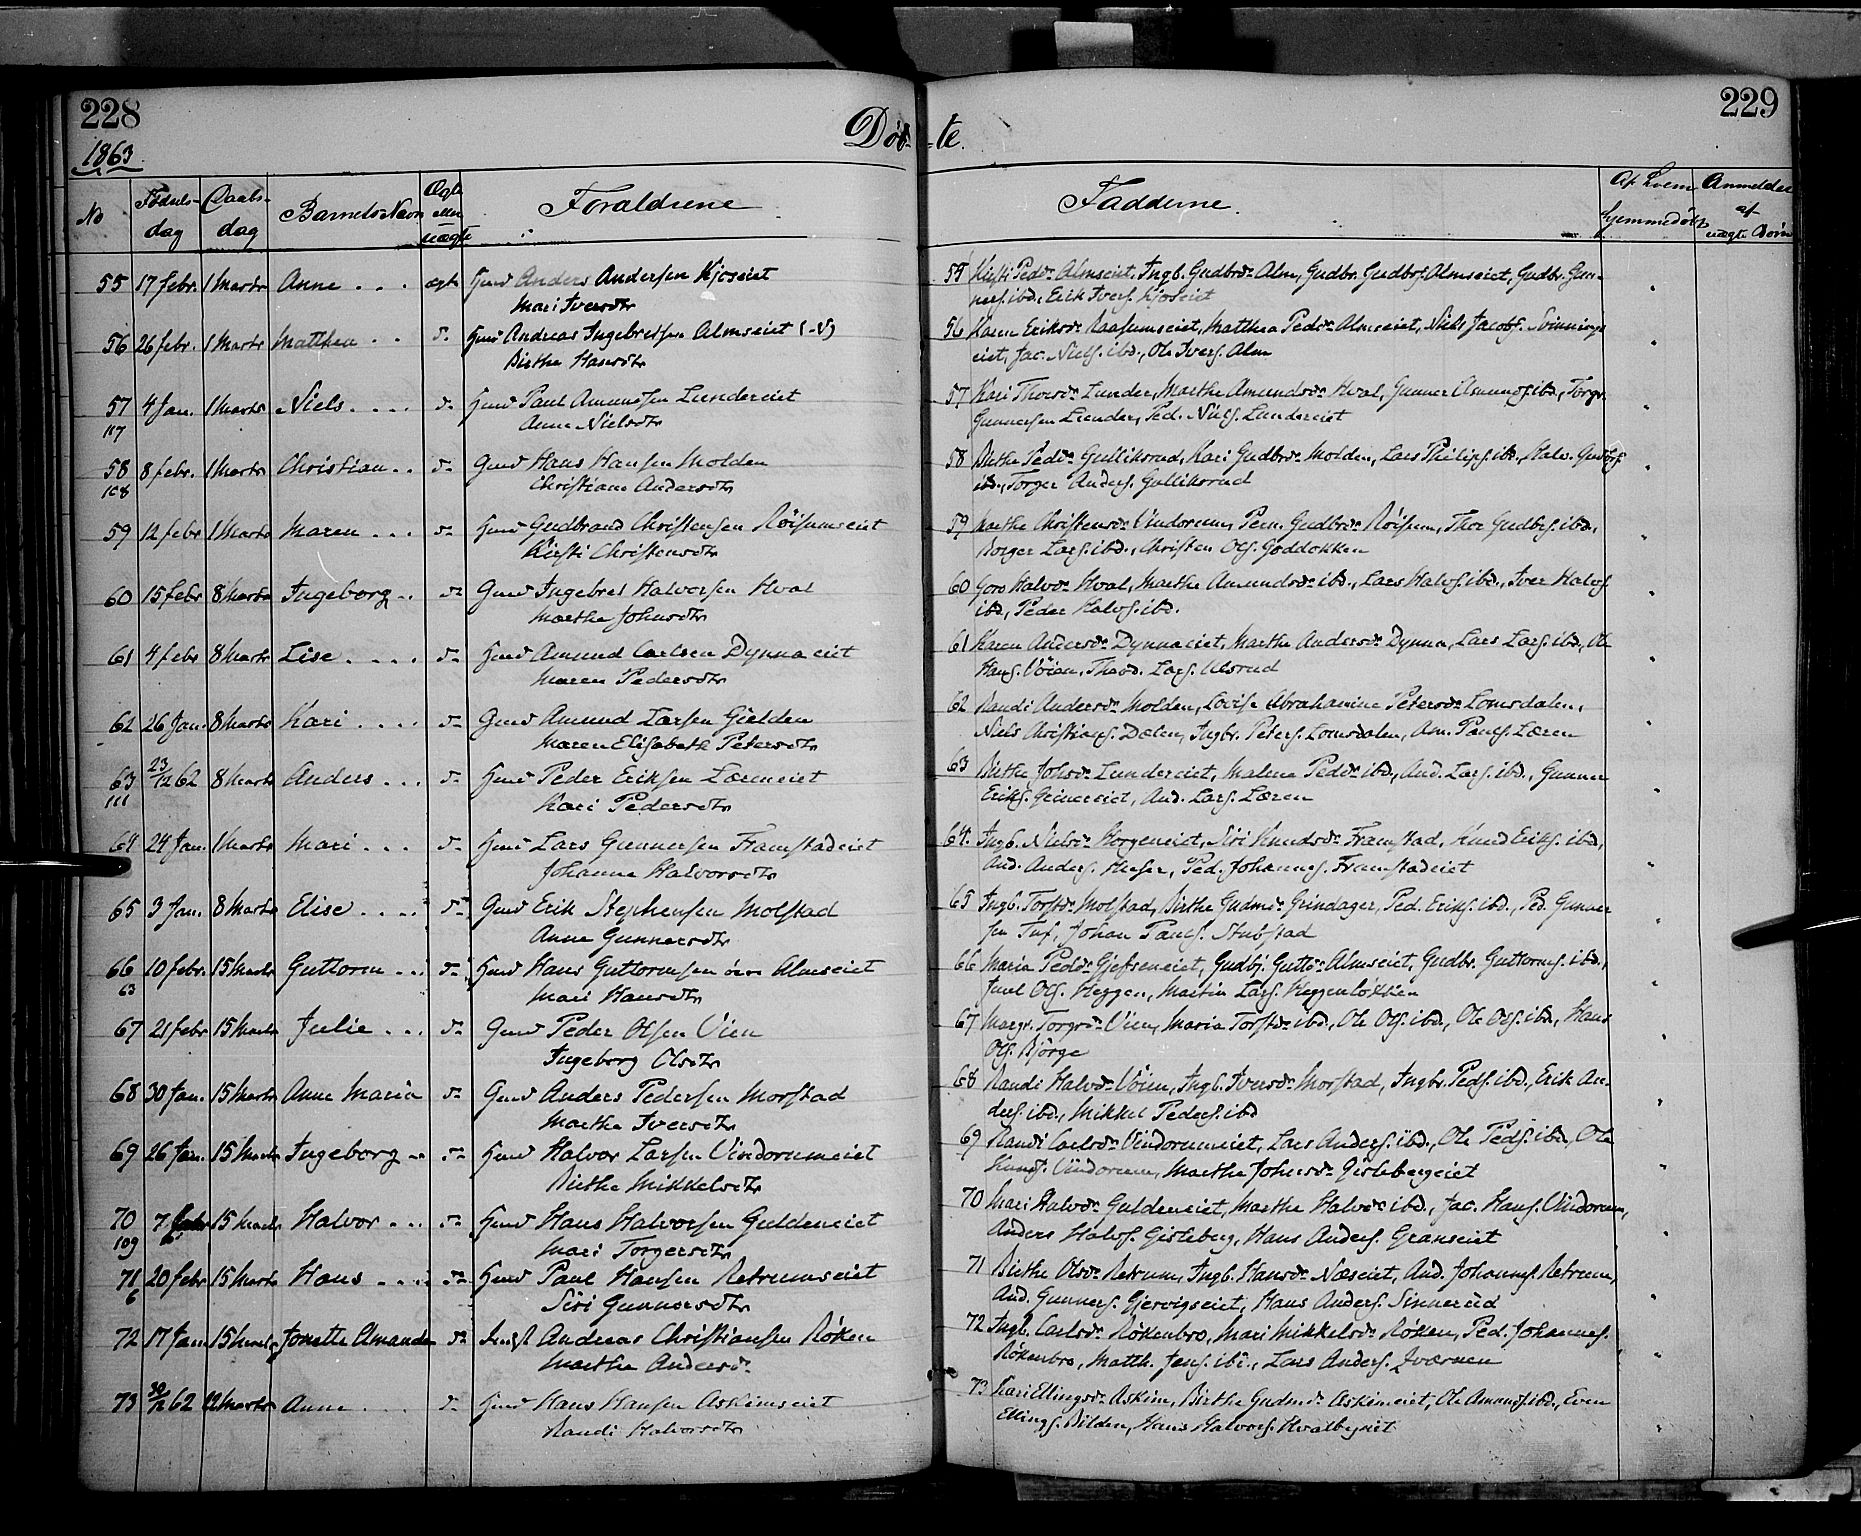 228
229
Døb-
-te.
1863
No
Fødsels-
dag
Daabs-
dag
Barnets Navn
Ægte
eller
uægte
Forældrene
Fadderne.
Af hvem
hjemmedøbt
Anmelder
af
uægte Børn
55 17 febr. 1 Marts Anne ægte Huusd Anders Andersen Kjoseiet
Mari Iversdtr
55 Kirsti Pedsdr Almseiet, Ingb. Gudbrdr Alm, Gudbr. Gudbrs. Almseiet, Gudbr. Gun-
ners. ibd., Erik Ivers. Kjoseiet
56 26 febr. 1 Marts Matthea do Huusd Andreas Ingebretsen Almseiet (N)
Birthe Hansdtr
56 Karen Eriksdr Raasumseiet, Matthea Pedsdr Almseiet, Niels Jacobs. Svinnings
eiet, Jac. Niels. ibd., Ole Ivers. Alm
57 4 Jan. 1 Marts Niels do Huusd Paul Amundsen Lundereiet
107 Anne Nielsdtr
57 Kari Thorsdr Lunder, Marthe Amundsdr Hval, Gunner Amunds. ibd., Torgr.
Gunnersen Lunder, Ped. Niels. Lundereiet
58 8 febr. 1 Marts Christian do Gmd Hans Hansen Molden
108 Christiane Andersdtr
58 Birthe Pedsdr Gulliksrud, Kari Gudbrdr Molden, Lars Philips. ibd., Halv. Gudbrs.
ibd., Torger Anders. Gulliksrud
59 12 febr 1 Marts Maren do Huusd Gudbrand Christensen Röisumseiet
Kirsti Christensdtr
59 Marthe Christensdr Vindorum, Pern. Gudbrdr Röisum, Thor Gudbrs. ibd.,
Borger Lars. ibd., Christen Ols. Goddokken
60 15 febr 8 Marts Ingeborg do Gmd Ingebret Halvorsen Hval
Marthe Johnsdtr
60 Goro Halvdr Hval, Marthe Amundsdr ibd., Lars Halvs. ibd., Iver Halvs
ibd., Peder Halvs. ibd.
61 4 febr 8 Marts Lise do Huusd Amund Carlsen Dynnaeiet
Maren Pedersdtr
61 Karen Andersdr Dynnaeiet, Marthe Andersdr Dynna, Lars Lars. ibd., Ole
Hans. Vöien, Theod. Lars. Ulsrud
62 26 Jan. 8 Marts Kari do Gmd Amund Larsen Gjelden
Maren Elisabeth Petersdtr
62 Randi Andersdr Molden, Lovise Abrahamine Petersdr Lomsdalen,
Niels Christians. Dælen, Ingbr. Peters. Lomsdalen, Am. Pauls. Læren
63 23/12 62 8 Marts Anders do Huusd Peder Eriksen Læreneiet
111 Kari Pedersdtr
63 Birthe Johsdr Lundereiet, Malene Pedsdr ibd., And. Lars. ibd., Gunner
Eriks. Grinereiet, And. Lars. Læren
64 24 Jan. 1 Marts Mari do Huusd Lars Gunnersen Framstadeiet
Johanne Halvorsdtr
64. Ingb. Nielsdr Horgeneiet, Siri Knudsdr Framstad, Knud Eriks. ibd.,
And. Anders. Helgen, Ped. Johannes. Framstadeiet
65 3 Jan. 8 Marts Elise do Gmd Erik Stephensen Molstad
Anne Gunnersdtr
65 Ingb. Torstdr Molstad, Birthe Gudmdr Grindager, Ped. Eriks. ibd., Ped. Gunner
sen Tuf, Johan Pauls. Stubstad
66 10 febr. 15 Marts Guttorm do Huusd Hans Guttormsen övre Almseiet
63 Mari Hansdtr
66 Maria Pedsdr Gjefseneiet, Gudbj. Guttdr Almseiet, Gudbr. Guttorms. ibd.,
Juul Ols. Heggen, Martin Lars. Heggenlökken
67 21 febr 15 Marts Julie do Gmd Peder Olsen Vien
Ingeborg Olsdtr
67 Margr. Torgrdr Vien, Maria Torstdr ibd., Ole Ols. ibd., Ole Ols. ibd., Hans
Ols. Björge
68 30 Jan. 15 Marts Anne Maria do Gmd Anders Pedersen Morstad
Marthe Iversdtr
68 Randi Halvdr Vöien, Ingb. Iversdr Morstad, Ingbr. Peds. ibd., Erik An-
ders. ibd., Mikkel Peders. ibd
69 26 Jan. 15 Marts Ingeborg do Huusd Halvor Larsen Vindorumeiet
Birthe Mikkelsdtr
69 Randi Carlsdr Vindorumeiet, Lars Anders. ibd., Ole Peds. ibd., Ole
Knuds. Vindorum, Marthe Johnsdr Gislebergeiet
70 7 febr 15 Marts Halvor do Huusd Hans Halvorsen Guldeneiet
109 Mari Torgersdtr
70 Mari Halvdr Guldeneiet, Marthe Halvdr ibd., Jac. Hans. Vindorum,
Anders Halvs. Gisleberg, Hans Anders. Graneiet
71 20 febr 15 Marts Hans do Huusd Paul Hansen Retrumseiet
6 Siri Gunnersdtr
71 Birthe Olsdr Retrum, Ingb. Hansdr Næseiet, And. Johannes. Retrum,
And. Gunners. Gjervigseiet, Hans Anders. Sinnerud
72 17 Jan 15 Marts Jonette Amanda do Andreas Christiansen Röken
Marthe Andersdr
72 Ingb. Carlsdr Rökenbro, Mari Mikkelsdr Röken, Ped. Johannes.
Rökenbro, Matth. Jens. ibd., Lars Anders. Qværnen
73 30/12 62 22 Marts Anne do Huusd Hans Hansen Askimseiet
Randi Halvorsdtr
73 Kari Ellingsdr Askim, Birthe Gudmdr Askimeiet, Ole Amunds. ibd., Even
Ellings. Bilden, Hans Halvors. Hvalbyeiet